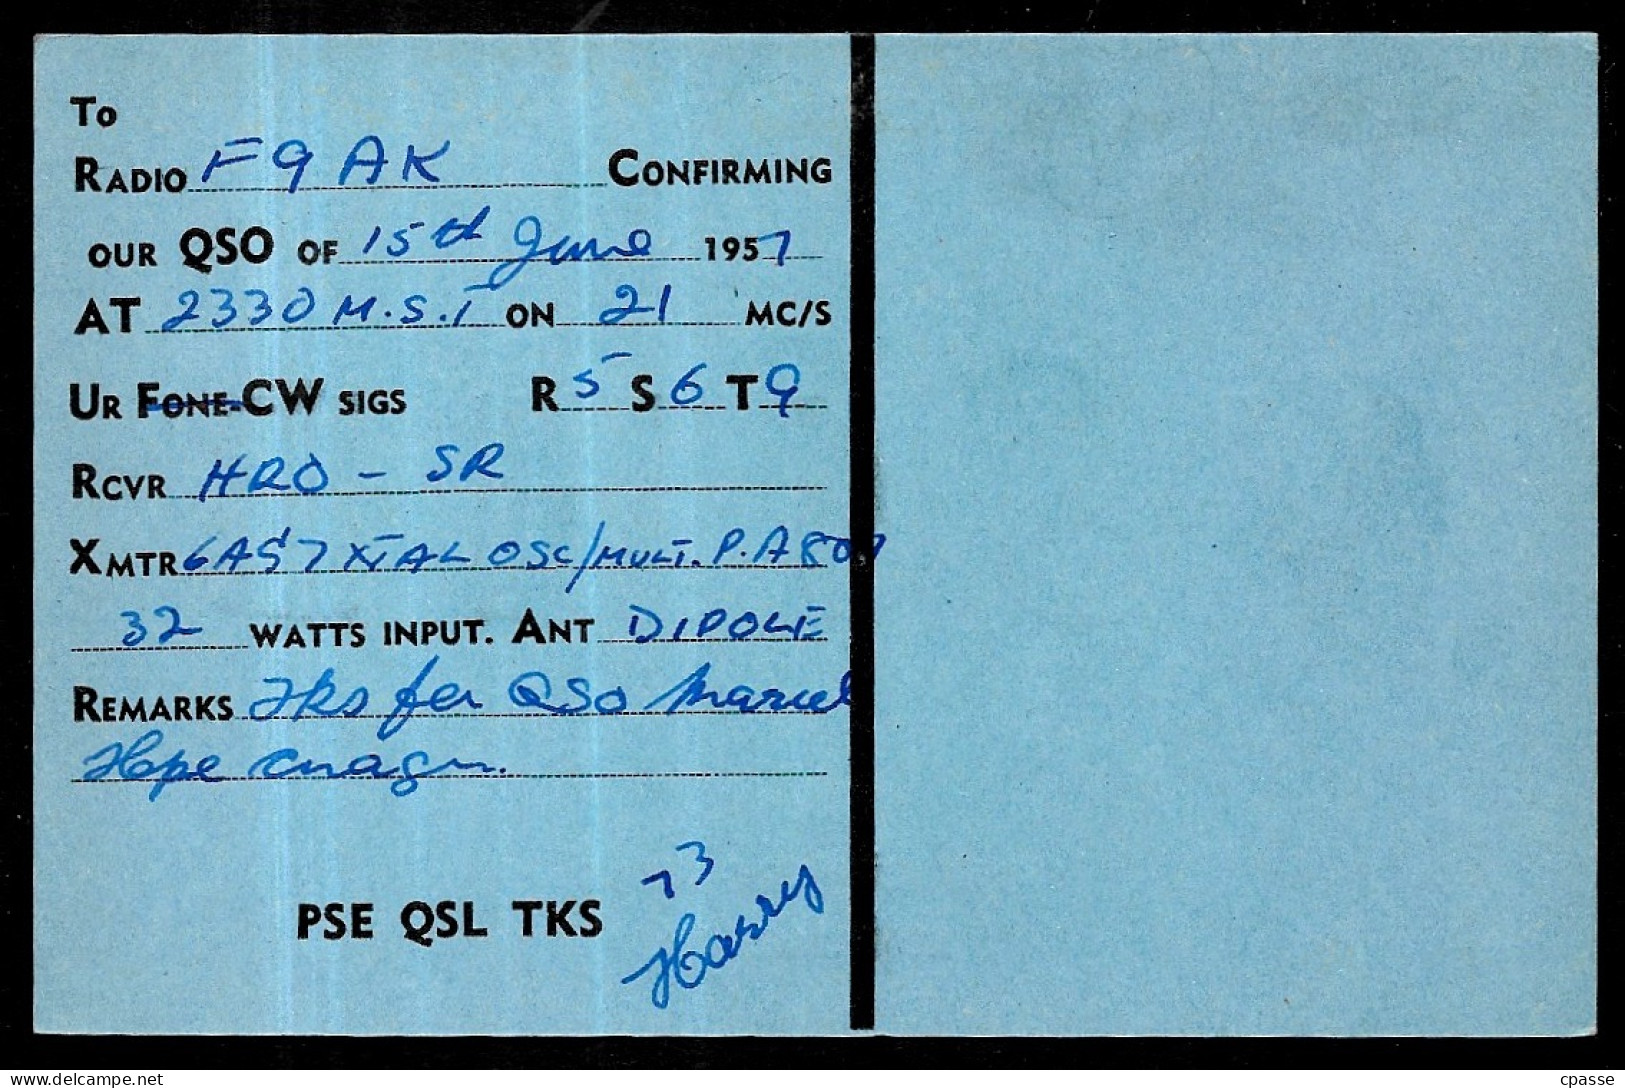 To
RADIO F9AK CONFIRMING
OUR QSO OF 15th June 1957
AT 2330 M.S.T ON 21 MC/S
UR FONE-CW SIGS R 5 S 6 T 9
RCVR HRO - SR
XMTR 6AS7 XTAL OSC/MULT. P.A 807
32 WATTS INPUT. ANT DIPOLE
REMARKS Tks fer QSO Marcel
Hope cuagn.
73
PSE QSL TKS
Harry
delcampe.net
cpasse